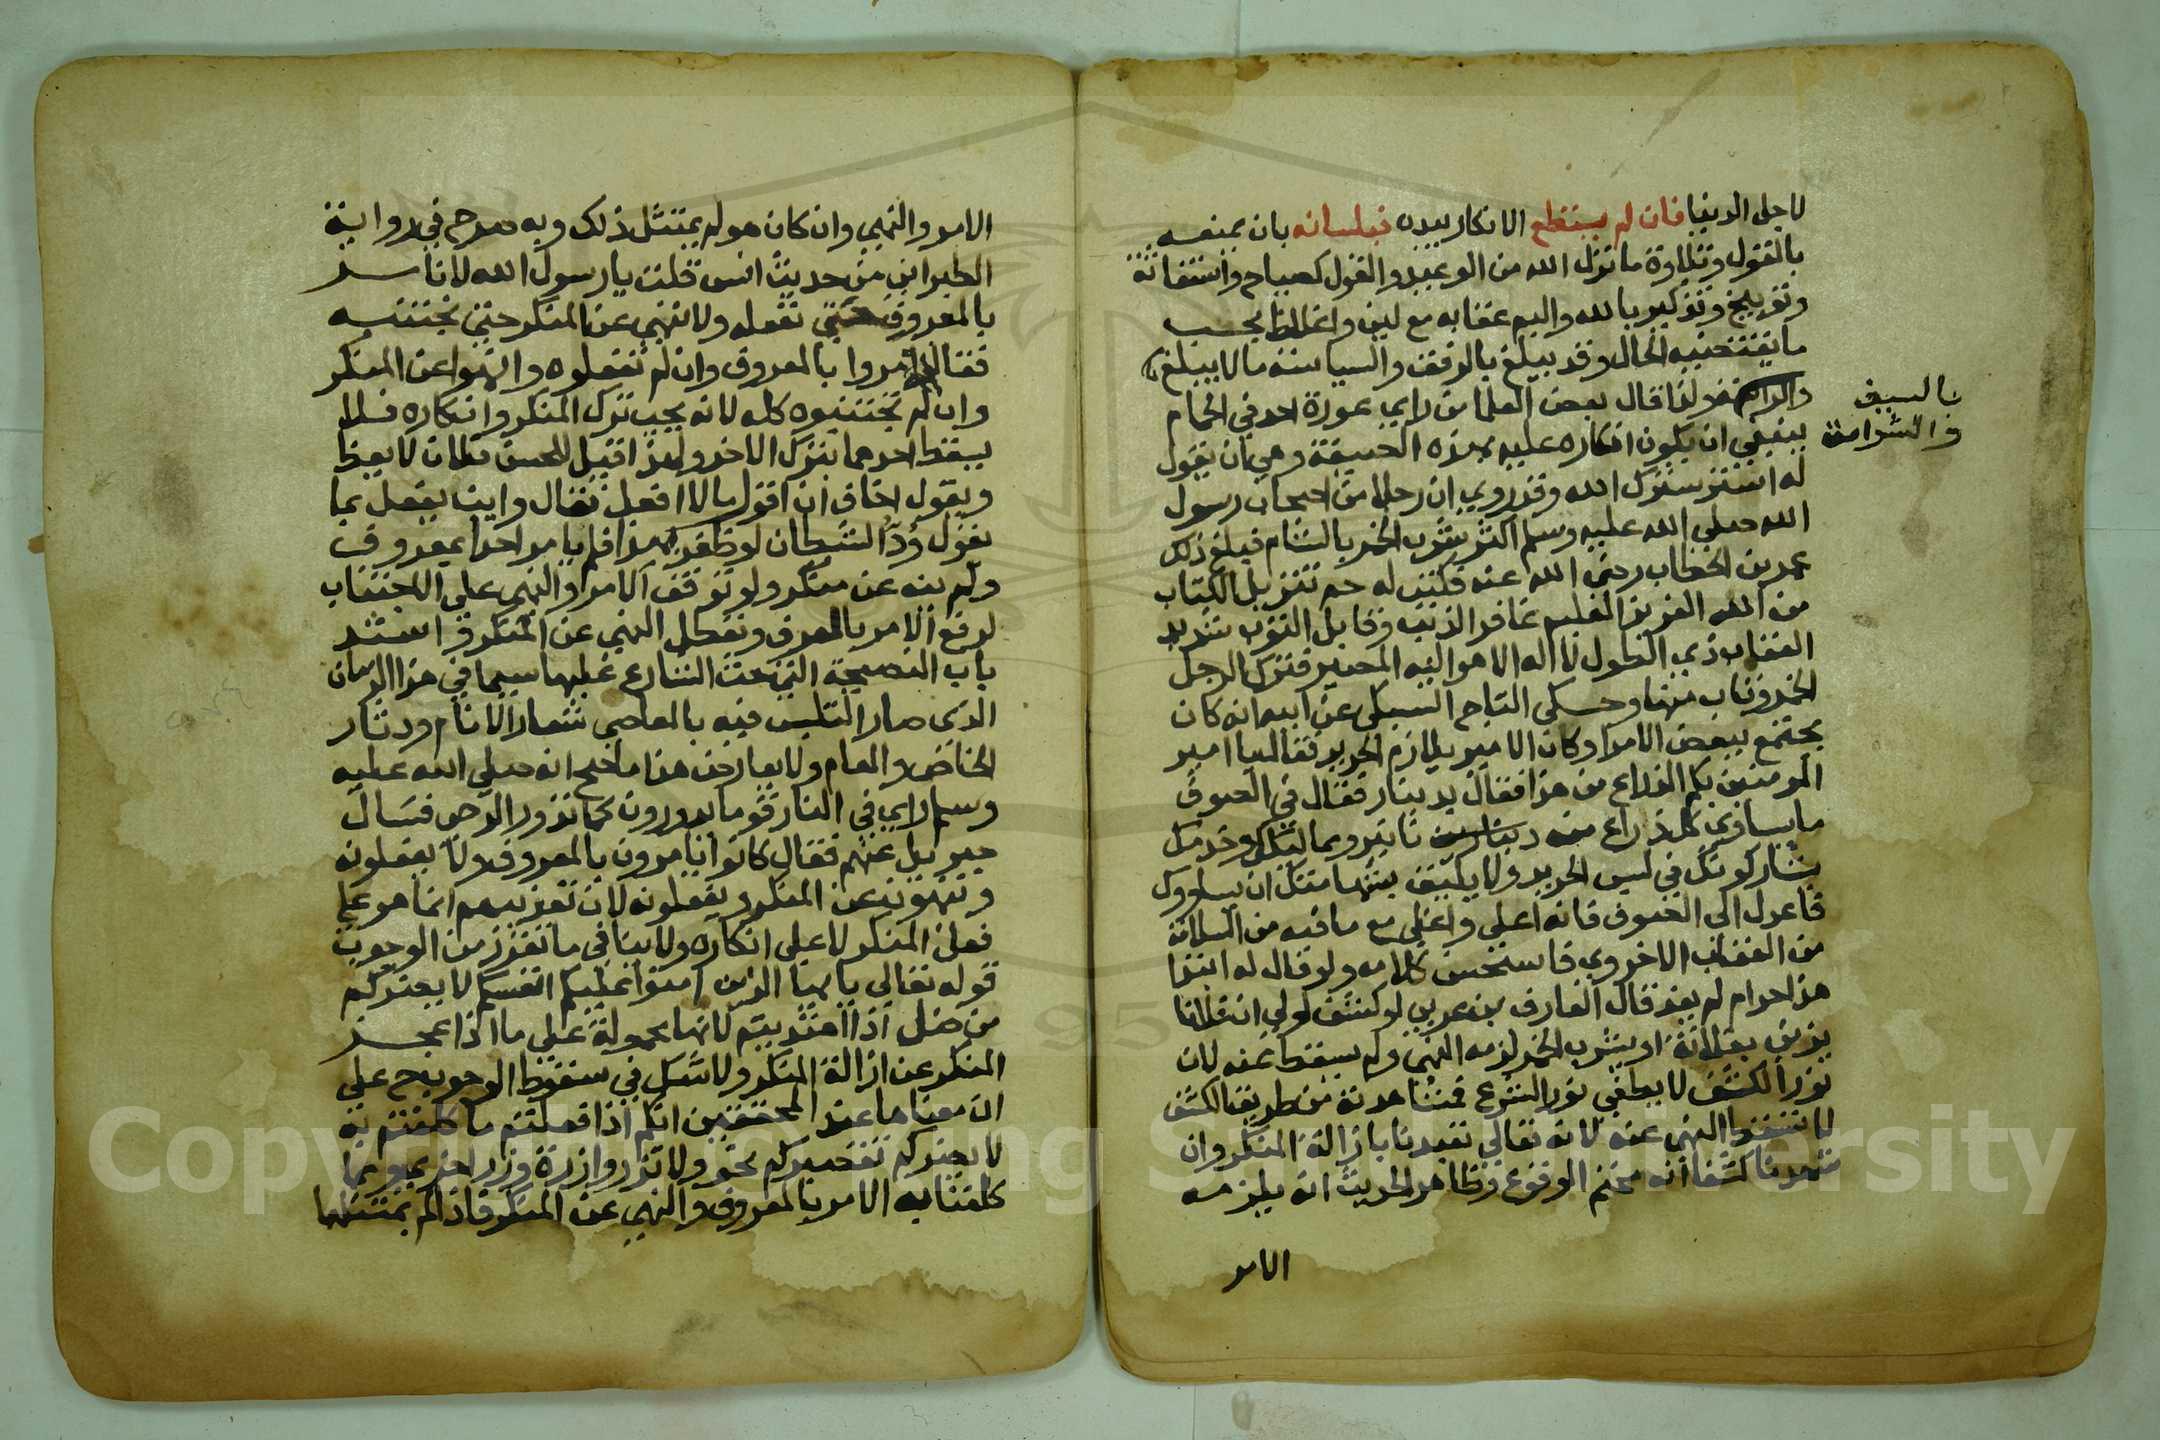 لاجل الدنيا فان لم يستطع الانكار بيده فبلسانه بان يمنعه
بالقول وتلاوة ما نزل الله من الوعيد والقول كصياح واستغاثة
وتوبيخ وتذكير بالله واليم عقابه مع لين واغلاظ بحسب
ما يقتضيه الحال وقد يبلغ بالرفق والسياسة ما لا يبلغ
بالسيف
والشرامة
ولذا قال بعض العلما من راي عورة احد في الحمام
ينبغي ان يكون انكاره عليه بهذه الصيغة وهي ان يقول
له استتر سترك الله وقد روي ان رجلا من اصحاب رسول
الله صلي الله عليه وسلم اكثر يشرب الخمر بالشام فبلغ ذلك
عمر بن الخطاب رضي الله عنه فكتب له حم تنزيل الكتاب
من الله العزيز العليم غافر الذنب وقابل التوب شديد
العقاب ذي الطول لا اله الا هو اليه المصير فترك الرجل
الخمر وتاب منها وحكى التاج السبكي عن ابيه انه كان
يجتمع ببعض الامرا وكان الامير يلازم الحرير فقال يا امير
المومنين بكم الذراع من هذا فقال بدينار فقال في الصوف
ما يساوي كل ذراع منه دينارين ثانير ومماليكك وخدمك
يشاركونك في لبس الحرير ولا يليق بشهامتك ان يساووك
فاعدل الي الصوف فانه اعلي واغلي مع ما فيه من السلامة
من العقاب الاخروي فاستحسن كلامه ولو قال له ابتدا
هذا حرام لم يفد قال العارف بن عربي لو كشف لولي ان فلانا
يزني بفلانة او يشرب الخمر لزمه النهي ولم يسقط عنه لان
نور الكشف لا يطفي نور الشرع فمشاهدته من طريق الكشف
لا تسقط النهي عنه لانه تعالي تعبدنا بازالة المنكر وان
شهدنا كشفا انه محتم الوقوع وظاهر الحديث انه يلزمه
الامر
الامر والنهي وان كان هو لم يمتثل ذلك وبه صرح في رواية
الطبراني من حديث انس قلنت يا رسول الله لا نامر
بالمعروف حتي نفعله ولا ننهي عن المنكر حتي نجتنبه
فقال امروا بالمعروف وان لم تفعلوه وانهوا عن المنكر
وان لم تجتنبوه كله لانه يجب ترك المنكر وانكاره فلا
يسقط احدهما بترك الاخر ولهذا قيل للحسن فلان لا يعظ
ويقول اخاف ان اقول ما لا افعل فقال واينا يفعل بما
يقول ودّ الشيطان لو ظفر بهذا فلم يامر احدا بمعروف
ولم ينه عن منكر ولو توقف الامر والنهي علي الاجتناب
لرفع الامر بالمعروف وتعطل النهي عن المنكر وانسد
باب النصيحة التي حث الشارع عليها سيما في هذا الزمان
الذي صار التلبس فيه بالمعاصي شعار الانام ودثار
الخاص والعام ولا يعارض هذا ما صح انه صلي الله عليه
وسلم راي في النار قوما يدورون كما تدور الرحى فسال
جبريل عنهم فقال كانوا يامرون بالمعروف ولا يفعلونه
وينهون عن المنكر ويفعلونه لان تعذيبهم انما هو علي
فعل المنكر لا علي انكاره ولا ينافي ما تقرر من الوجوب
قوله تعالي يا يها الذين امنوا عليكم انفسكم لا يضركم
من ضل اذا اهتديتم لانها محمولة علي ما اذا عجز
المنكر عن ازالة المنكر ولا شك في سقوط الوجوب ح علي
ان معناها عند المحققين انكم اذا فعلتم ما كلفتم به
لا يضركم تقصيركم نحو ولا تزر وازرة وزر اخري ومما
كلفنا به الامر بالمعروف والنهي عن المنكر فاذا لم يمتثلها